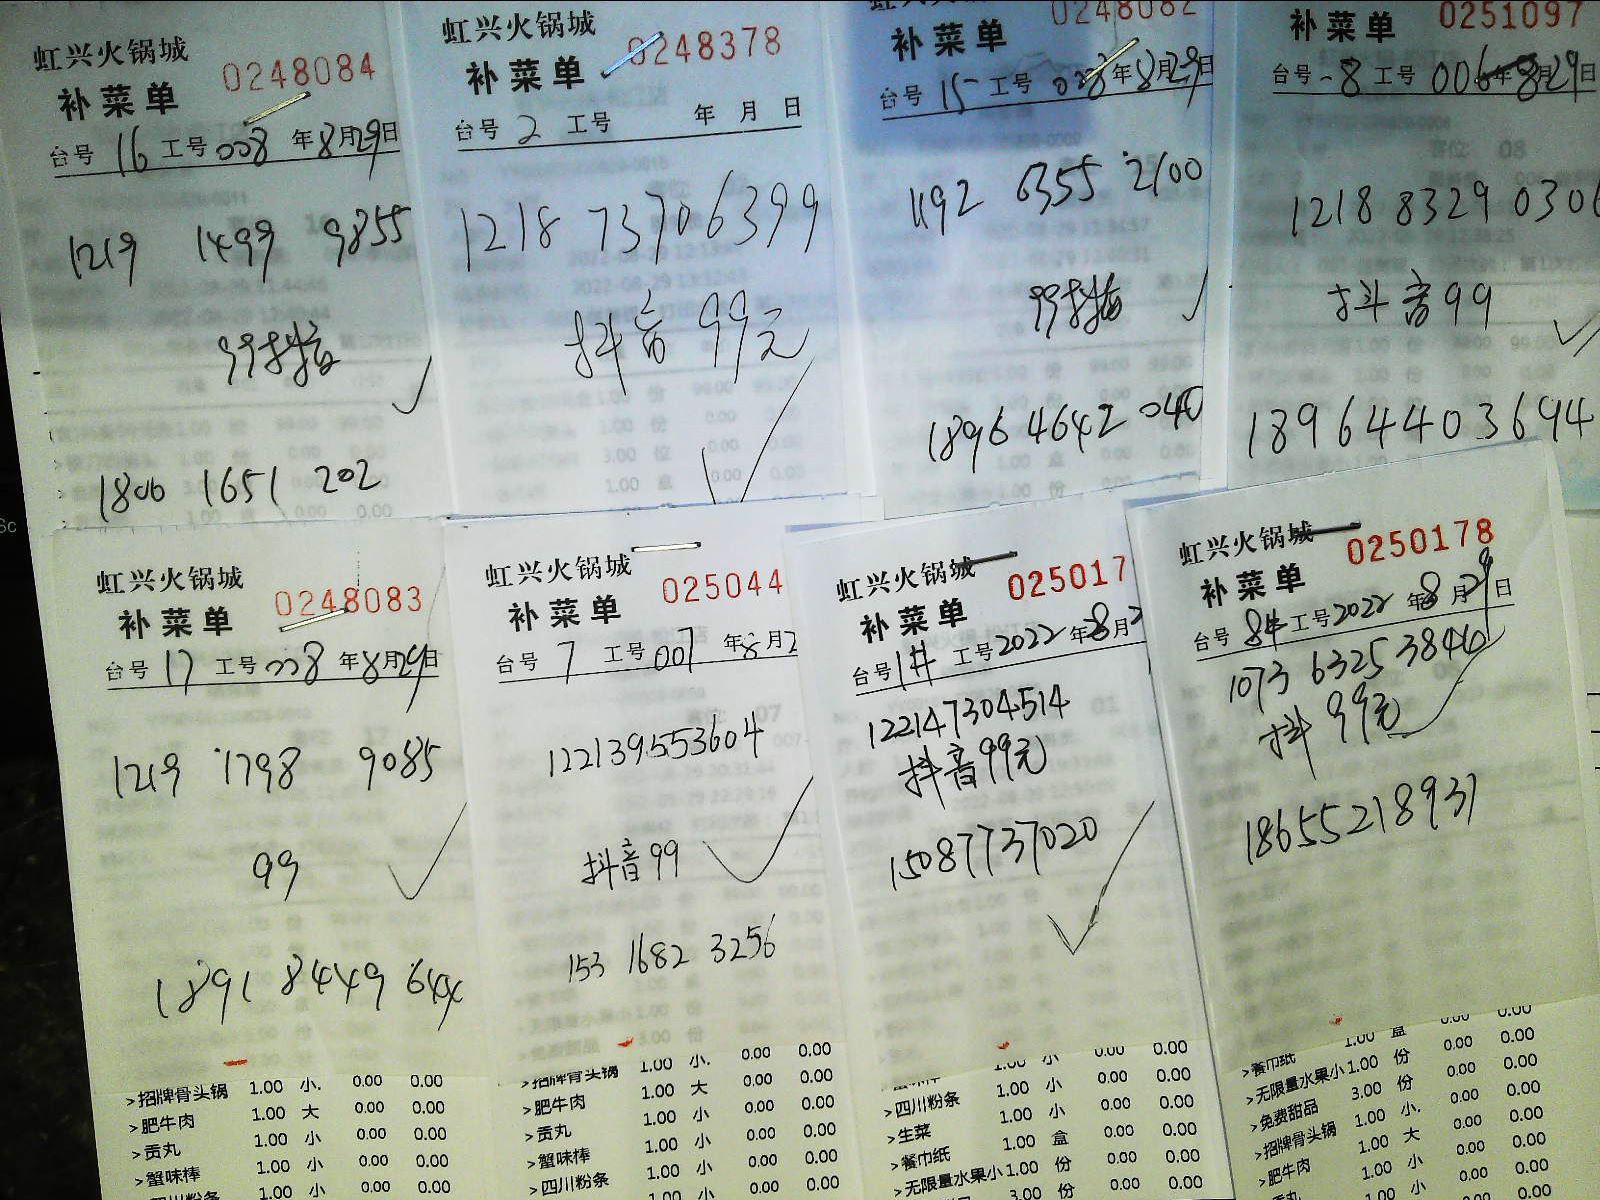 虹兴火锅城
补菜单 0248084
台号 16 工号 008 年 8月29日
1219 1499 9855
99抖音
1806 1651 202
虹兴火锅城
补菜单 0248378
台号 2 工号 年 月 日
1218 73706399
抖音 99元
补菜单 0248082
台号 15 工号 008 年 8月29日
1192 6355 2100
99抖音
1896 4642 040
补菜单 0251097
台号 8 工号 006 年 8月29日
1218 8329 0306
抖音99
18964403694
虹兴火锅城
补菜单 0248083
台号 17 工号 008 年 8月29日
1219 1798 9085
99
1891 8449 644
>招牌骨头锅 1.00 小. 0.00 0.00
>肥牛肉 1.00 大 0.00 0.00
>贡丸 1.00 小 0.00 0.00
>蟹味棒 1.00 小 0.00 0.00
四川粉条 1.00 小 0.00 0.00
虹兴火锅城
补菜单 025044
台号 7 工号 007 年 8月2
122139553604
抖音99
153 1682 3256
>招牌骨头锅 1.00 小. 0.00 0.00
>肥牛肉 1.00 大 0.00 0.00
>贡丸 1.00 小 0.00 0.00
>蟹味棒 1.00 小 0.00 0.00
>四川粉条 1.00 小 0.00 0.00
虹兴火锅城
补菜单 025017
台号 1# 工号 2022 年 8月2
122147304514
抖音99元
15087737020
蟹味棒 1.00 小 0.00 0.00
>四川粉条 1.00 小 0.00 0.00
>生菜 1.00 小 0.00 0.00
>餐巾纸 1.00 盒 0.00 0.00
>无限量水果小 1.00 份 0.00 0.00
3.00 份 0.00 0.00
虹兴火锅城
补菜单 0250178
台号 8# 工号 2022 年 8月29日
1073 63253846
抖 99元
18655218931
>餐巾纸 1.00 盒 0.00 0.00
>无限量水果小 1.00 份 0.00 0.00
>免费甜品 3.00 份 0.00 0.00
>招牌骨头锅 1.00 小. 0.00 0.00
>肥牛肉 1.00 大 0.00 0.00
贡丸 1.00 小 0.00 0.00